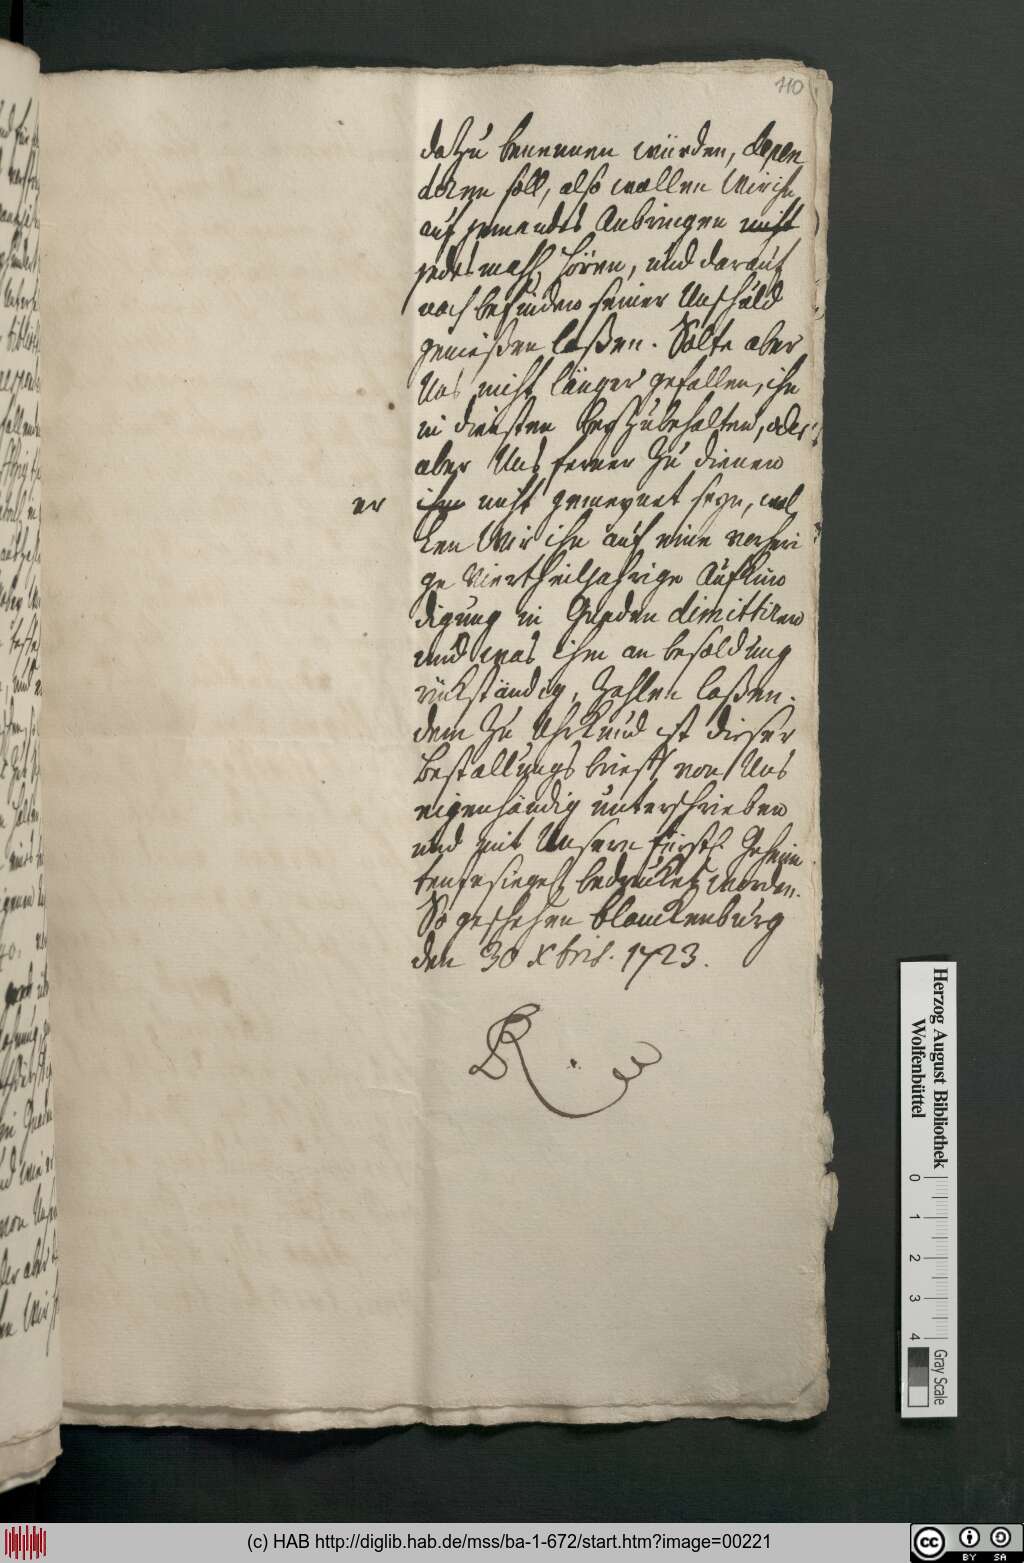 110
dazu benennen würden, depen
diren soll, also wollen Wir ihn
auf jemandes Anbringen nicht
jedesmahl hören, und darauf
nach befinden seiner Unschuld
genießen laßen. Solte aber
Uns nicht länger gefallen, ihn
in diensten beyzubehalten, oder
aber Uns ferner zu dienen
er ihm nicht gemeynet seyn, wol
len Wir ihn auf eine vorheri
ge Viertheiljahrige Aufkün
digung in Gnaden dimittiren
und was ihm an besoldung
rückständig, zahlen laßen.
dem zu Uhrkund ist dieser
Bestallungs brieff von Uns
eigenhändig unterschrieben
und mit Unserm fürstl. Geheim
bedrucket worden.
So geschehen Blanckenburg
den 30 Xbris. 1723.
LR.
Herzog August Bibliothek
Wolfenbüttel
0 1 2 3 4
Gray Scale
(c) HAB http://diglib.hab.de/mss/ba-1-672/start.htm?image=00221
cc BY SA